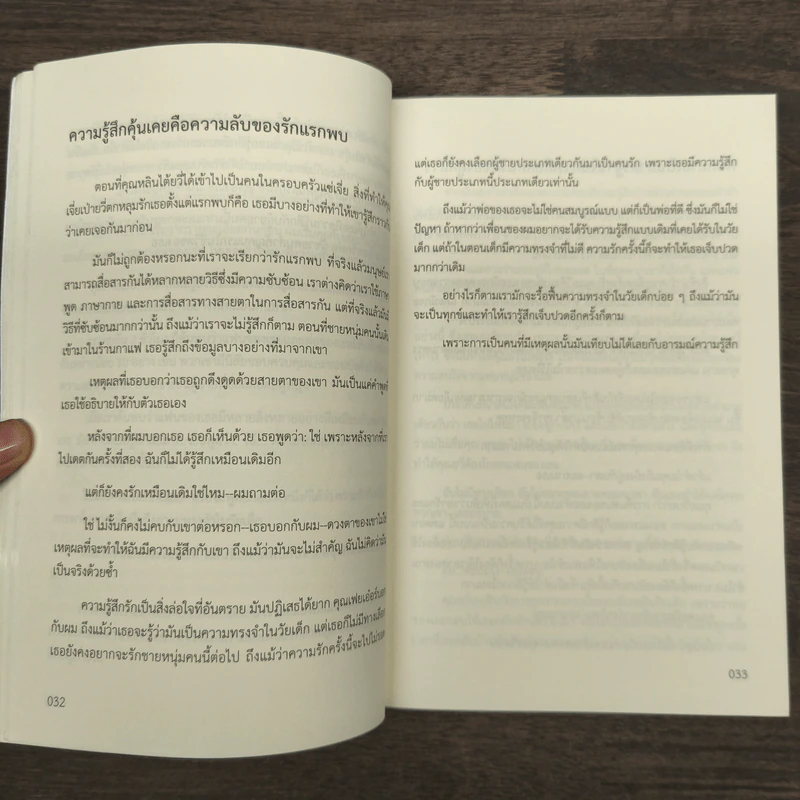 ความรู้สึกคุ้นเคยคือความลับของรักแรกพบ
ตอนที่คุณหลินไต้ยวี่ได้เข้าไปเป็นคนในครอบครัวแซ่เจี่ย สิ่งที่ทำให้คุณ
เจี่ยเป่ายวี่ตกหลุมรักเธอตั้งแต่แรกพบก็คือ เธอมีบางอย่างที่ทำให้เขารู้สึกราวกับ
ว่าเคยเจอกันมาก่อน
มันก็ไม่ถูกต้องหรอกนะที่เราจะเรียกว่ารักแรกพบ ที่จริงแล้วมนุษย์เรา
สามารถสื่อสารกันได้หลากหลายวิธีซึ่งมีความซับซ้อน เราต่างคิดว่าเราใช้ภาษา
พูด ภาษากาย และการสื่อสารทางสายตาในการสื่อสารกัน แต่ที่จริงแล้วมันมี
วิธีที่ซับซ้อนมากกว่านั้น ถึงแม้ว่าเราจะไม่รู้สึกก็ตาม ตอนที่ชายหนุ่มคนนั้นเดิน
เข้ามาในร้านกาแฟ เธอรู้สึกถึงข้อมูลบางอย่างที่มาจากเขา
เหตุผลที่เธอบอกว่าเธอถูกดึงดูดด้วยสายตาของเขา มันเป็นแค่คำพูดที่
เธอใช้อธิบายให้กับตัวเธอเอง
หลังจากที่ผมบอกเธอ เธอก็เห็นด้วย เธอพูดว่า: ใช่ เพราะหลังจากที่เรา
ไปเดตกันครั้งที่สอง ฉันก็ไม่ได้รู้สึกเหมือนเดิมอีก
แต่ก็ยังคงรักเหมือนเดิมใช่ไหม--ผมถามต่อ
ใช่ ไม่งั้นก็คงไม่คบกับเขาต่อหรอก--เธอบอกกับผม--ดวงตาของเขาไม่ใช่
เหตุผลที่จะทำให้ฉันมีความรู้สึกกับเขา ถึงแม้ว่ามันจะไม่สำคัญ ฉันไม่คิดว่ามัน
เป็นจริงด้วยซ้ำ
ความรู้สึกรักเป็นสิ่งล่อใจที่อันตราย มันปฏิเสธได้ยาก คุณเฟยเอ๋อร์บอก
กับผม ถึงแม้ว่าเธอจะรู้ว่ามันเป็นความทรงจำในวัยเด็ก แต่เธอก็ไม่มีทางเลือก
เธอยังคงอยากจะรักชายหนุ่มคนนี้ต่อไป ถึงแม้ว่าความรักครั้งนี้จะไปไม่รอด
032
แต่เธอก็ยังคงเลือกผู้ชายประเภทเดียวกันมาเป็นคนรัก เพราะเธอมีความรู้สึก
กับผู้ชายประเภทนี้ประเภทเดียวเท่านั้น
ถึงแม้ว่าพ่อของเธอจะไม่ใช่คนสมบูรณ์แบบ แต่ก็เป็นพ่อที่ดี ซึ่งมันก็ไม่ใช่
ปัญหา ถ้าหากว่าเพื่อนของผมอยากจะได้รับความรู้สึกแบบเดิมที่เคยได้รับในวัย
เด็ก แต่ถ้าในตอนเด็กมีความทรงจำที่ไม่ดี ความรักครั้งนี้ก็จะทำให้เธอเจ็บปวด
มากกว่าเดิม
อย่างไรก็ตามเรามักจะรื้อฟื้นความทรงจำในวัยเด็กบ่อย ๆ ถึงแม้ว่ามัน
จะเป็นทุกข์และทำให้เรารู้สึกเจ็บปวดอีกครั้งก็ตาม
เพราะการเป็นคนที่มีเหตุผลนั้นมันเทียบไม่ได้เลยกับอารมณ์ความรู้สึก
033